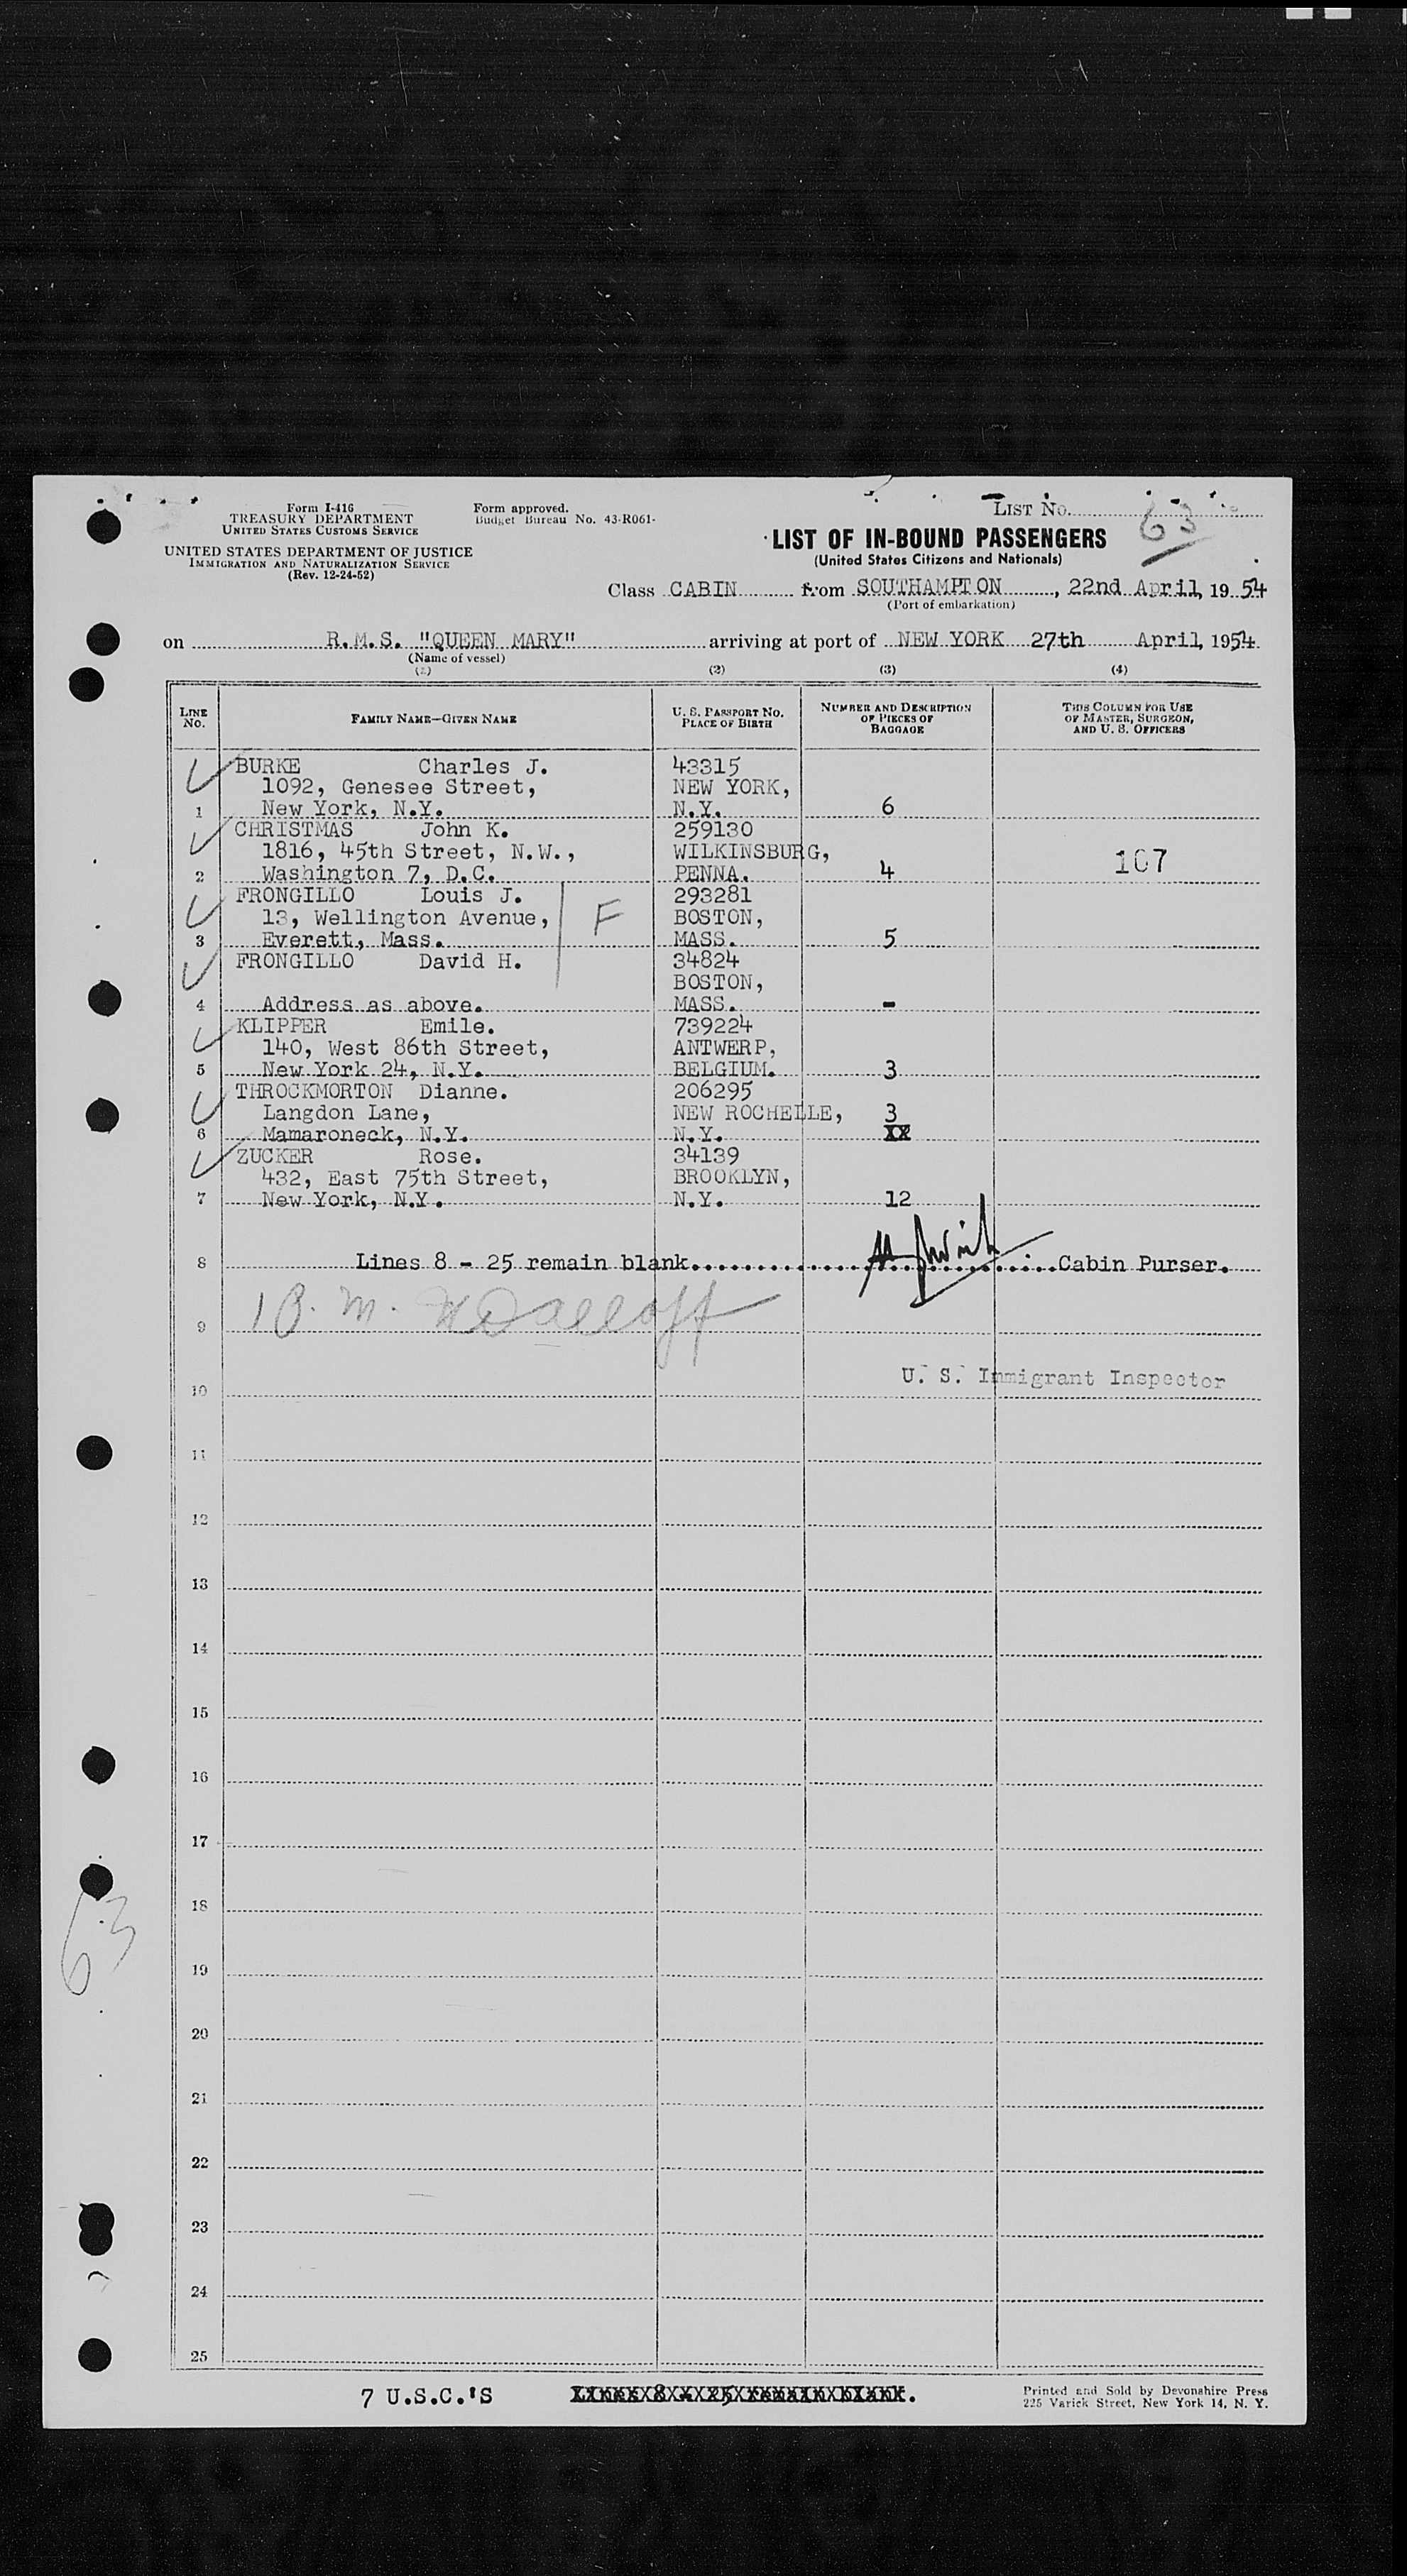 Form I-416
TREASURY DEPARTMENT
UNITED STATES CUSTOMS SERVICE
UNITED STATES DEPARTMENT OF JUSTICE
IMMIGRATION AND NATURALIZATION SERVICE
(Rev. 12-24-52)
Form approved.
Budget Bureau No. 43-R061-
LIST No. 63
LIST OF IN-BOUND PASSENGERS
(United States Citizens and Nationals)
Class CABIN from SOUTHAMPTON, 22nd April, 1954
(Port of embarkation)
on R.M.S. "QUEEN MARY" arriving at port of NEW YORK 27th April, 1954
(Name of vessel)
(1) (2) (3) (4)
LINE NO. FAMILY NAME—GIVEN NAME U. S. PASSPORT NO. PLACE OF BIRTH NUMBER AND DESCRIPTION OF PIECES OF BAGGAGE THIS COLUMN FOR USE OF MASTER, SURGEON, AND U. S. OFFICERS
BURKE Charles J. 43315
1092, Genesee Street, NEW YORK,
1 New York, N.Y. N.Y. 6
CHRISTMAS John K. 259130
1816, 45th Street, N.W., WILKINSBURG, 107
2 Washington 7, D.C. PENNA. 4
FRONGILLO Louis J. 293281
13, Wellington Avenue, F BOSTON,
3 Everett, Mass. MASS. 5
FRONGILLO David H. 34824
BOSTON,
4 Address as above. MASS. -
KLIPPER Emile. 739224
140, West 86th Street, ANTWERP,
5 New York 24, N.Y. BELGIUM. 3
THROCKMORTON Dianne. 206295
Langdon Lane, NEW ROCHELLE, 3
6 Mamaroneck, N.Y. N.Y. XX
ZUCKER Rose. 34139
432, East 75th Street, BROOKLYN,
7 New York, N.Y. N.Y. 12
8 Lines 8 - 25 remain blank. Cabin Purser.
9
U. S. Immigrant Inspector
10
11
12
13
14
15
16
17
18
63
19
20
21
22
23
24
25
7 U.S.C.'S Lines 8 - 25 remain blank.
Printed and Sold by Devonshire Press
225 Varick Street, New York 14, N. Y.